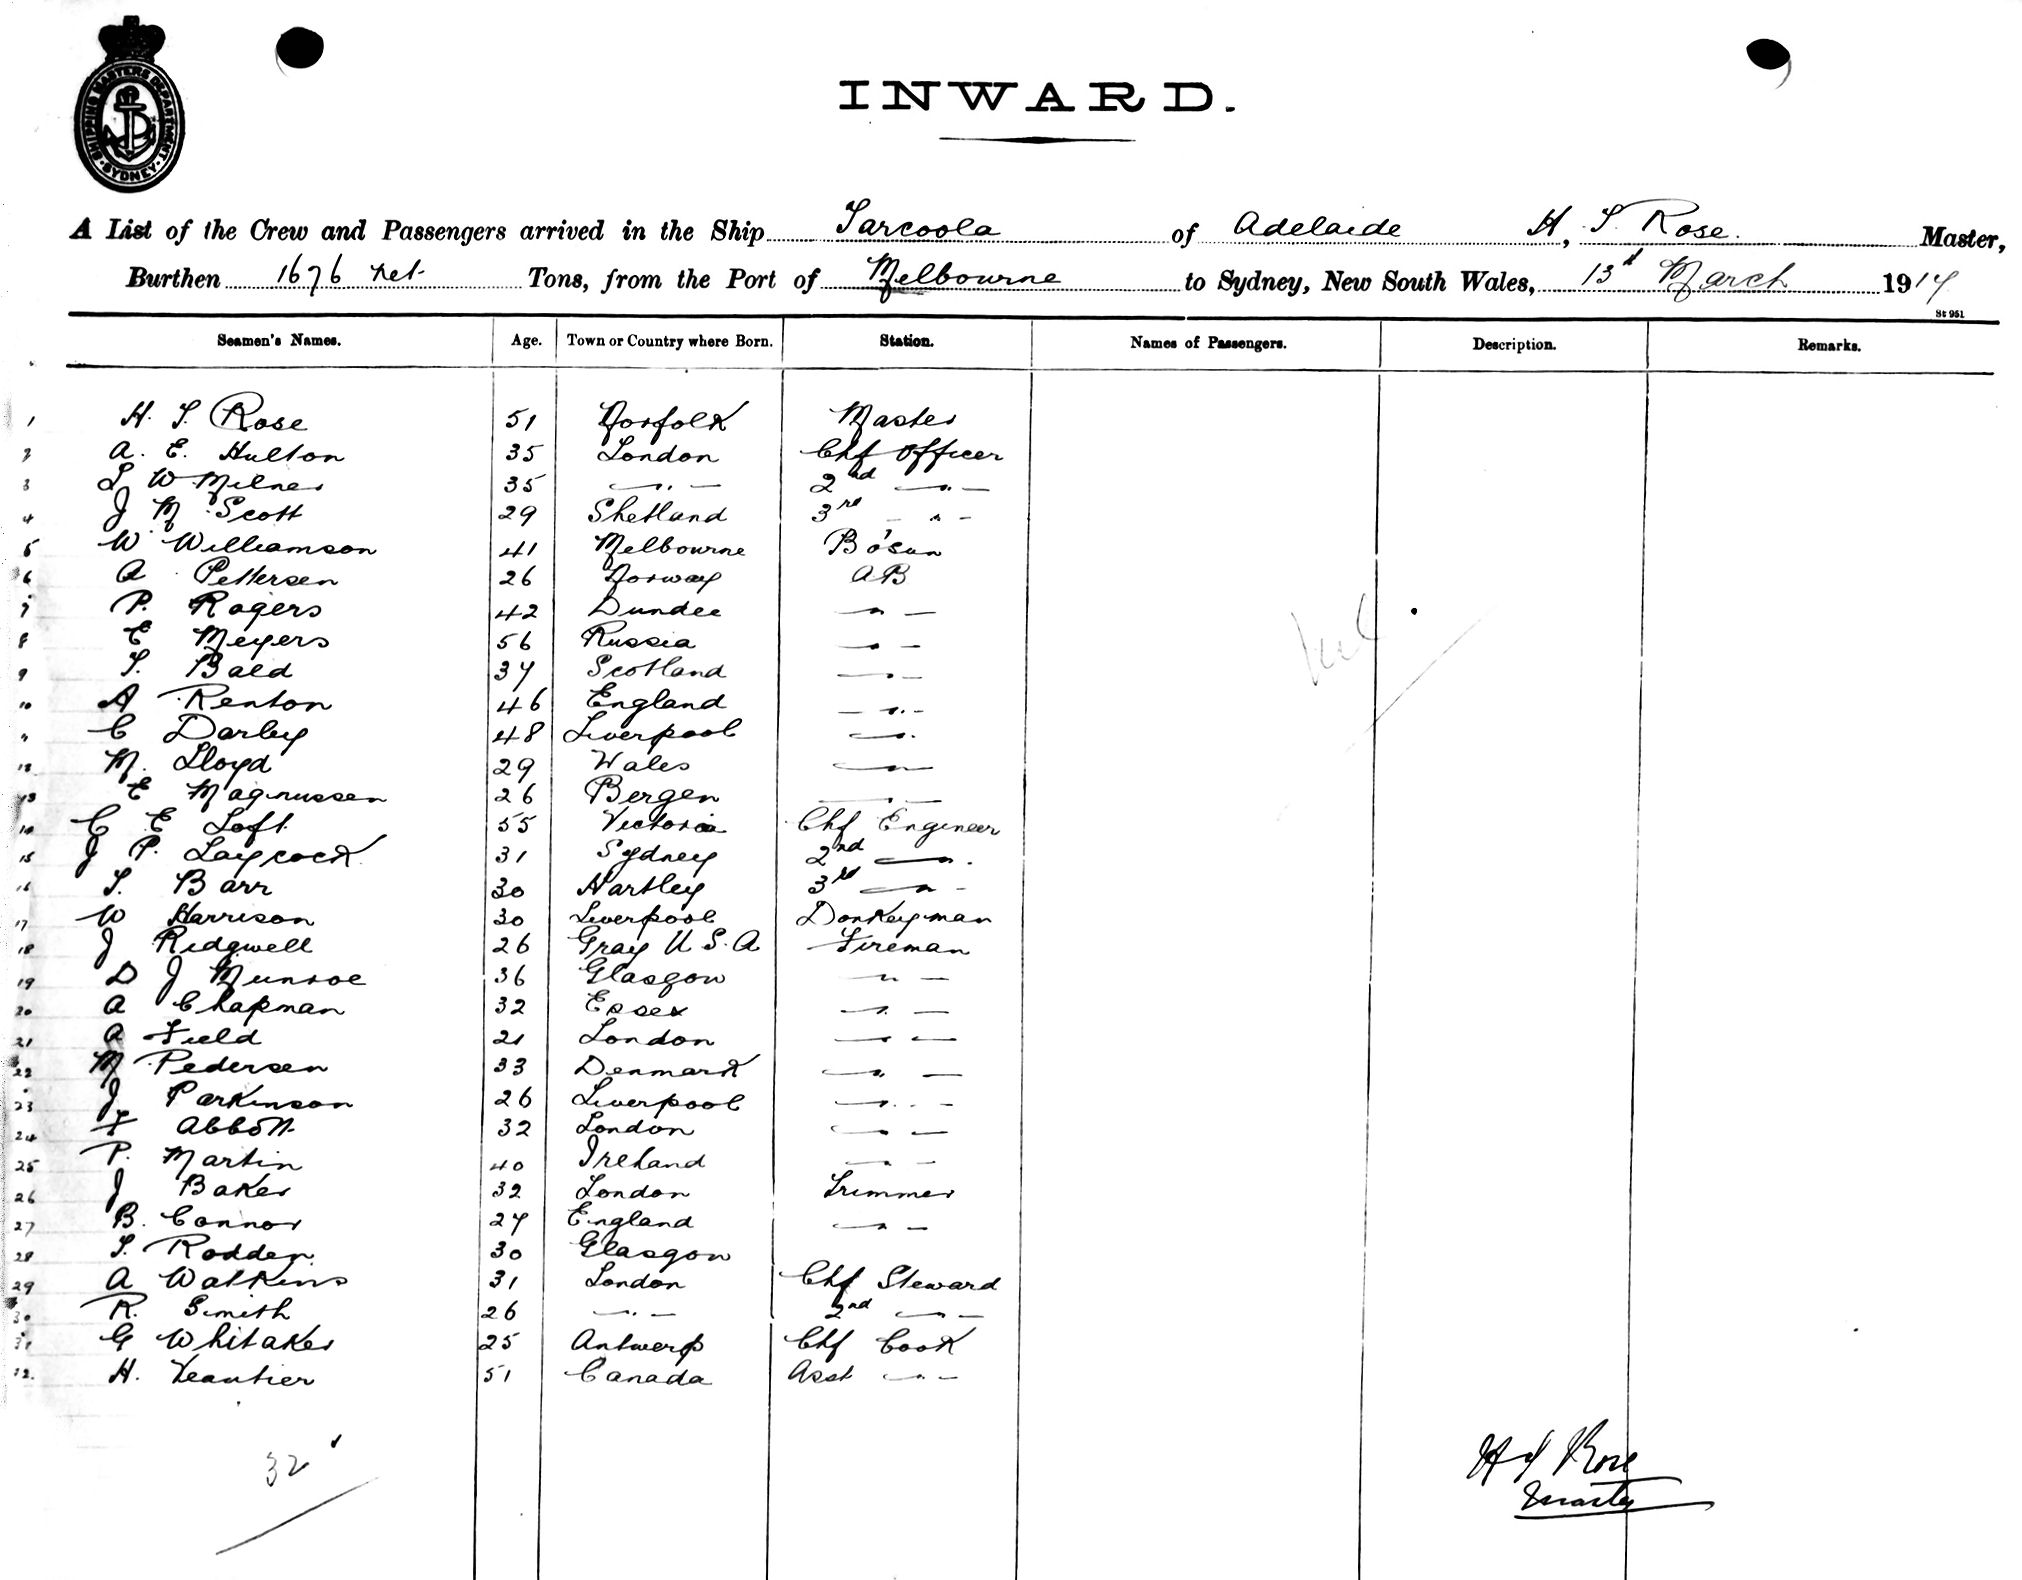 SHIPPING MASTERS DEPARTMENT
SYDNEY
INWARD.
A List of the Crew and Passengers arrived in the Ship Tarcoola of Adelaide H. T. Rose. Master,
Burthen 1676 net Tons, from the Port of Melbourne to Sydney, New South Wales, 13th March 1914
St 951
Seamen's Names. Age. Town or Country where Born. Station. Names of Passengers. Description. Remarks.
1 H. T. Rose 51 Norfolk Master
2 A. E. Hulton 35 London Chf Officer
3 L W Milner 35 — " — 2nd — " —
4 J M Scott 29 Shetland 3rd - " -
5 W Williamson 41 Melbourne Bo'sun
6 A Pettersen 26 Norway AB
7 P. Rogers 42 Dundee — " —
8 E Meyers 56 Russia — " —
9 T. Bald 37 Scotland — " —
10 A Renton 46 England — " —
11 C Darley 48 Liverpool — "
12 M. Lloyd 29 Wales — " —
13 E Magnussen 26 Bergen — " —
14 C E Loft 55 Victoria Chf Engineer
15 J P. Laycock 31 Sydney 2nd — "
16 T. Barr 30 Hartley 3rd — " -
17 W Harrison 30 Liverpool Donkeyman
18 J Ridgwell 26 Gray U.S.A Fireman
19 D J Munroe 36 Glasgow — " —
20 A Chapman 32 Essex — " —
21 A Field 21 London — " —
22 M Pedersen 33 Denmark — " —
23 J Parkinson 26 Liverpool — " -
24 F Abbott 32 London — " —
25 P. Martin 40 Ireland — " —
26 J Baker 32 London Trimmer
27 B. Connor 27 England — " —
28 T. Rodden 30 Glasgow
29 A Watkins 31 London Chf Steward
30 R. Smith 26 — " — 2nd — " —
31 G Whitaker 25 Antwerp Chf Cook
32. H. 51 Canada Asst — " —
32
H T Rose
Master